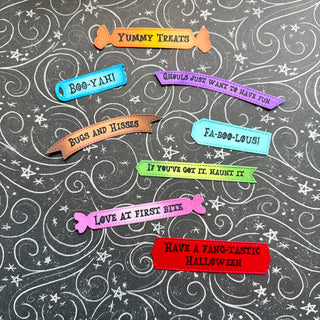 Yummy Treats
Boo-yah!
Ghouls just want to have fun
Bugs and Hisses
Fa-boo-lous!
If you've got it, haunt it
Love at first bite
Have a fang-tastic
Halloween